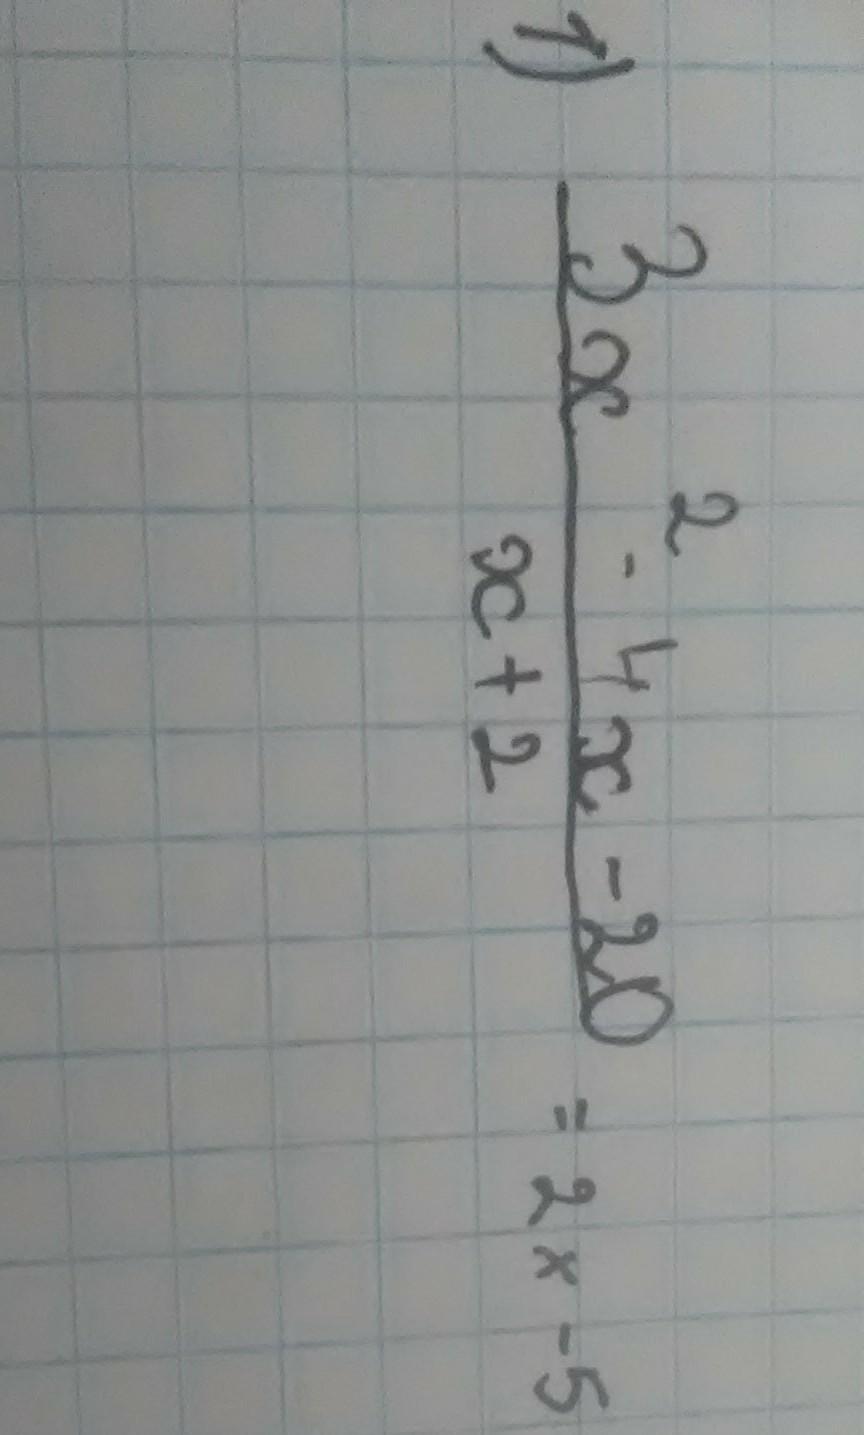 1) 3x² - 4x - 20
x + 2
= 2x - 5